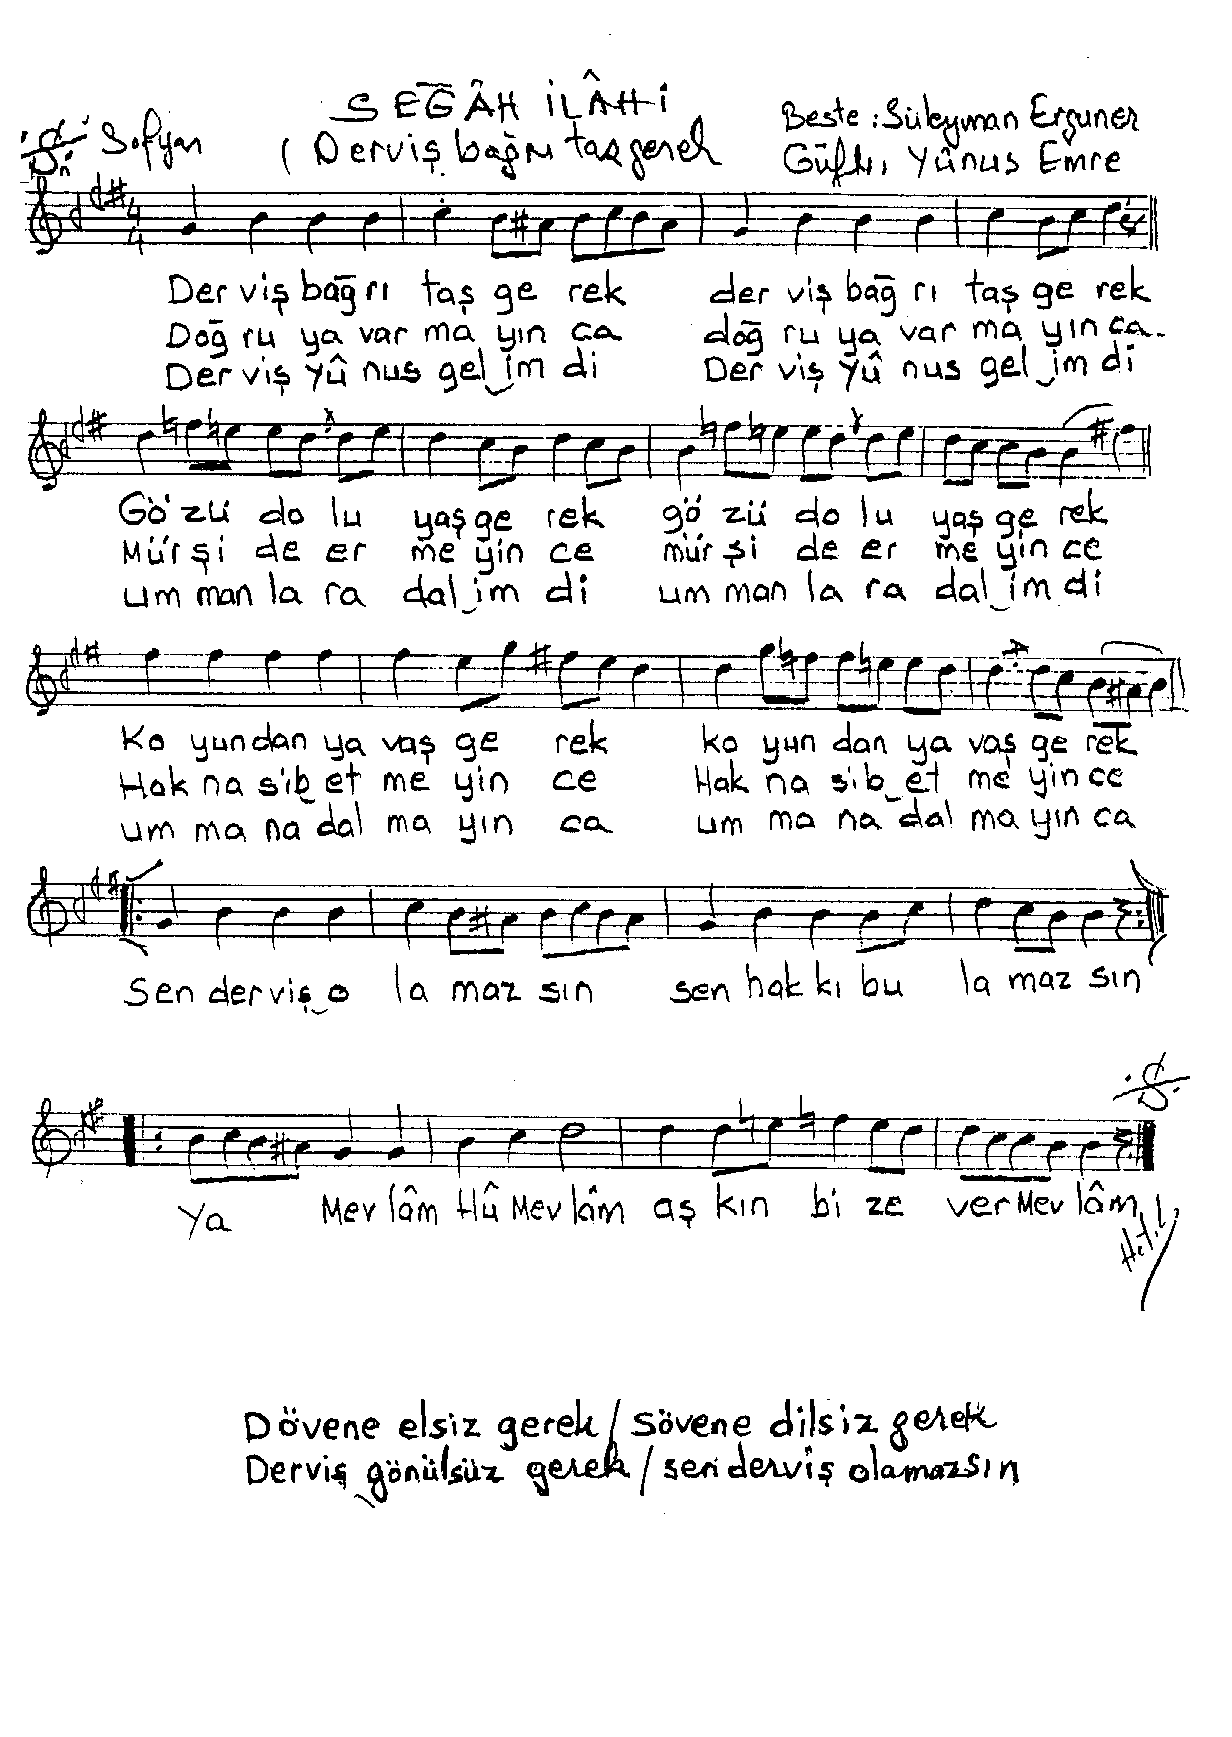 SEGÂH İLÂHİ
Sofyan
( Derviş bağrı taş gerek
Beste : Süleyman Erguner
Güfte: Yûnus Emre
4
4
Der viş bağ rı taş ge rek der viş bağ rı taş ge rek
Doğ ru ya var ma yın ca doğ ru ya var ma yın ca
Der viş Yû nus gel im di Der viş Yû nus gel im di
Gö zü do lu yaş ge rek gö zü do lu yaş ge rek
Mür şi de er me yin ce mür şi de er me yin ce
um man la ra dal im di um man la ra dal im di
Ko yun dan ya vaş ge rek ko yun dan ya vaş ge rek
Hak na sib et me yin ce Hak na sib et me yin ce
um ma na dal ma yın ca um ma na dal ma yın ca
Sen der viş o la maz sın sen hak kı bu la maz sın
Ya Mev lâm Hû Mev lâm aş kın bi ze ver Mev lâm
Dövene elsiz gerek / Sövene dilsiz gerek
Derviş gönülsüz gerek / sen derviş olamazsın